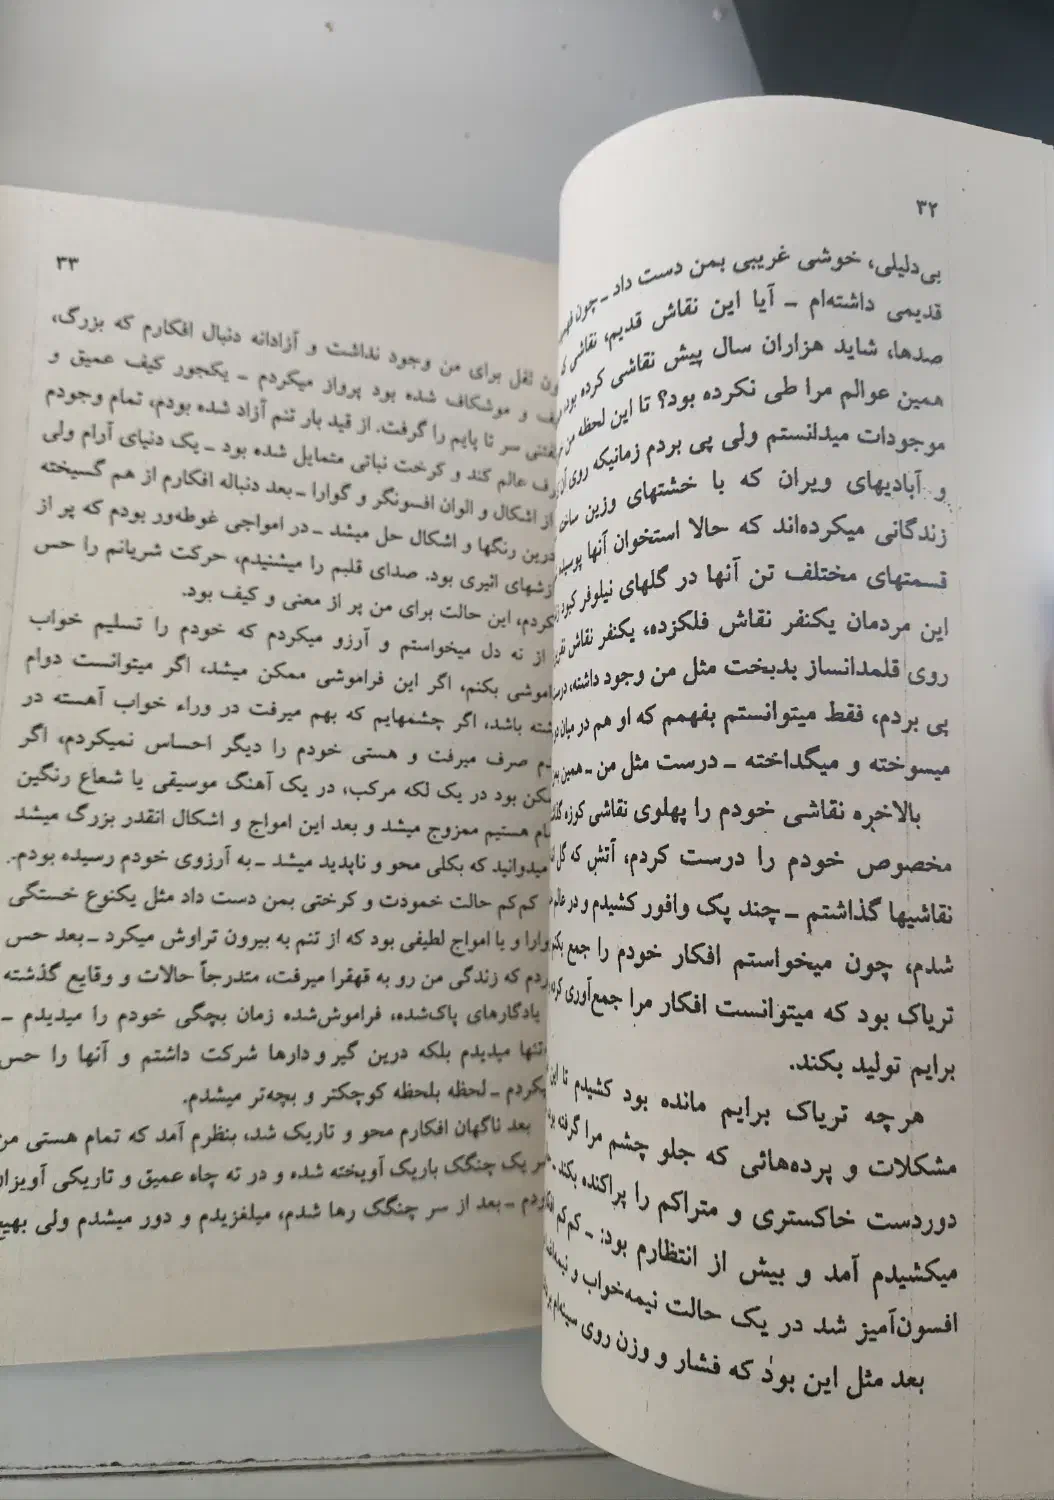 ۳۲
بی‌دلیلی، خوشی غریبی بمن دست داد ـ چون
قدیمی داشته‌ام ـ آیا این نقاش قدیم، نقاشی
صدها، شاید هزاران سال پیش نقاشی کرده بود
همین عوالم مرا طی نکرده بود؟ تا این لحظه من
موجودات میدانستم ولی پی بردم زمانیکه روی آن
و آبادیهای ویران که با خشتهای وزین
زندگانی میکرده‌اند که حالا استخوان آنها پوسیده
قسمتهای مختلف تن آنها در گلهای نیلوفر کبود
این مردمان یکنفر نقاش فلکزده، یکنفر نقاش
روی قلمدانساز بدبخت مثل من وجود داشته،
پی بردم، فقط میتوانستم بفهمم که او هم در میان
میسوخته و میگداخته ـ درست مثل من ـ همین
بالاخره نقاشی خودم را پهلوی نقاشی کوزه
مخصوص خودم را درست کردم، آتش که گل
نقاشیها گذاشتم ـ چند پک وافور کشیدم و در
شدم، چون میخواستم افکار خودم را جمع
تریاک بود که میتوانست افکار مرا جمع‌آوری
برایم تولید بکند.
هرچه تریاک برایم مانده بود کشیدم تا این
مشکلات و پرده‌هائی که جلو چشم مرا گرفته
دوردست خاکستری و متراکم را پراکنده بکند ـ
میکشیدم آمد و بیش از انتظارم بود: ـ کم‌کم
افسون‌آمیز شد در یک حالت نیمه‌خواب و
بعد مثل این بود که فشار و وزن روی سینه‌ام
۳۳
ثقل برای من وجود نداشت و آزادانه دنبال افکارم که بزرگ،
و موشکاف شده بود پرواز میکردم ـ یکجور کیف عمیق و
سر تا پایم را گرفت. از قید بار تنم آزاد شده بودم، تمام وجودم
عالم کند و کرخت نباتی متمایل شده بود ـ یک دنیای آرام ولی
از اشکال و الوان افسونگر و گوارا ـ بعد دنباله افکارم از هم گسیخته
درین رنگها و اشکال حل میشد ـ در امواجی غوطه‌ور بودم که پر از
اثیری بود. صدای قلبم را میشنیدم، حرکت شریانم را حس
این حالت برای من پر از معنی و کیف بود.
از ته دل میخواستم و آرزو میکردم که خودم را تسلیم خواب
بکنم، اگر این فراموشی ممکن میشد، اگر میتوانست دوام
باشد، اگر چشمهایم که بهم میرفت در وراء خواب آهسته در
صرف میرفت و هستی خودم را دیگر احساس نمیکردم، اگر
بود در یک لکه مرکب، در یک آهنگ موسیقی یا شعاع رنگین
هستیم ممزوج میشد و بعد این امواج و اشکال انقدر بزرگ میشد
میدوانید که بکلی محو و ناپدید میشد ـ به آرزوی خودم رسیده بودم.
کم‌کم حالت خمودت و کرختی بمن دست داد مثل یکنوع خستگی
و یا امواج لطیفی بود که از تنم به بیرون تراوش میکرد ـ بعد حس
که زندگی من رو به قهقرا میرفت، متدرجاً حالات و وقایع گذشته
یادگارهای پاک‌شده، فراموش‌شده زمان بچگی خودم را میدیدم ـ
میدیدم بلکه درین گیر و دارها شرکت داشتم و آنها را حس
ـ لحظه بلحظه کوچکتر و بچه‌تر میشدم.
بعد ناگهان افکارم محو و تاریک شد، بنظرم آمد که تمام هستی من
سر یک چنگک باریک آویخته شده و در ته چاه عمیق و تاریکی آویزان
ـ بعد از سر چنگک رها شدم، میلغزیدم و دور میشدم ولی